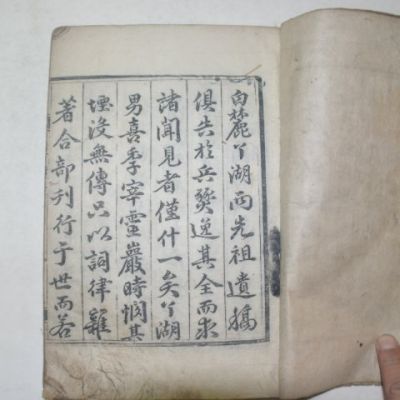 白麓丫湖兩先祖遺稿
俱失於兵燹逸其全而求
諸聞見者僅什一矣丫湖
男喜季宰靈巖時惘其
堙沒無傳只以詞律雜
著合部刊行于世而若